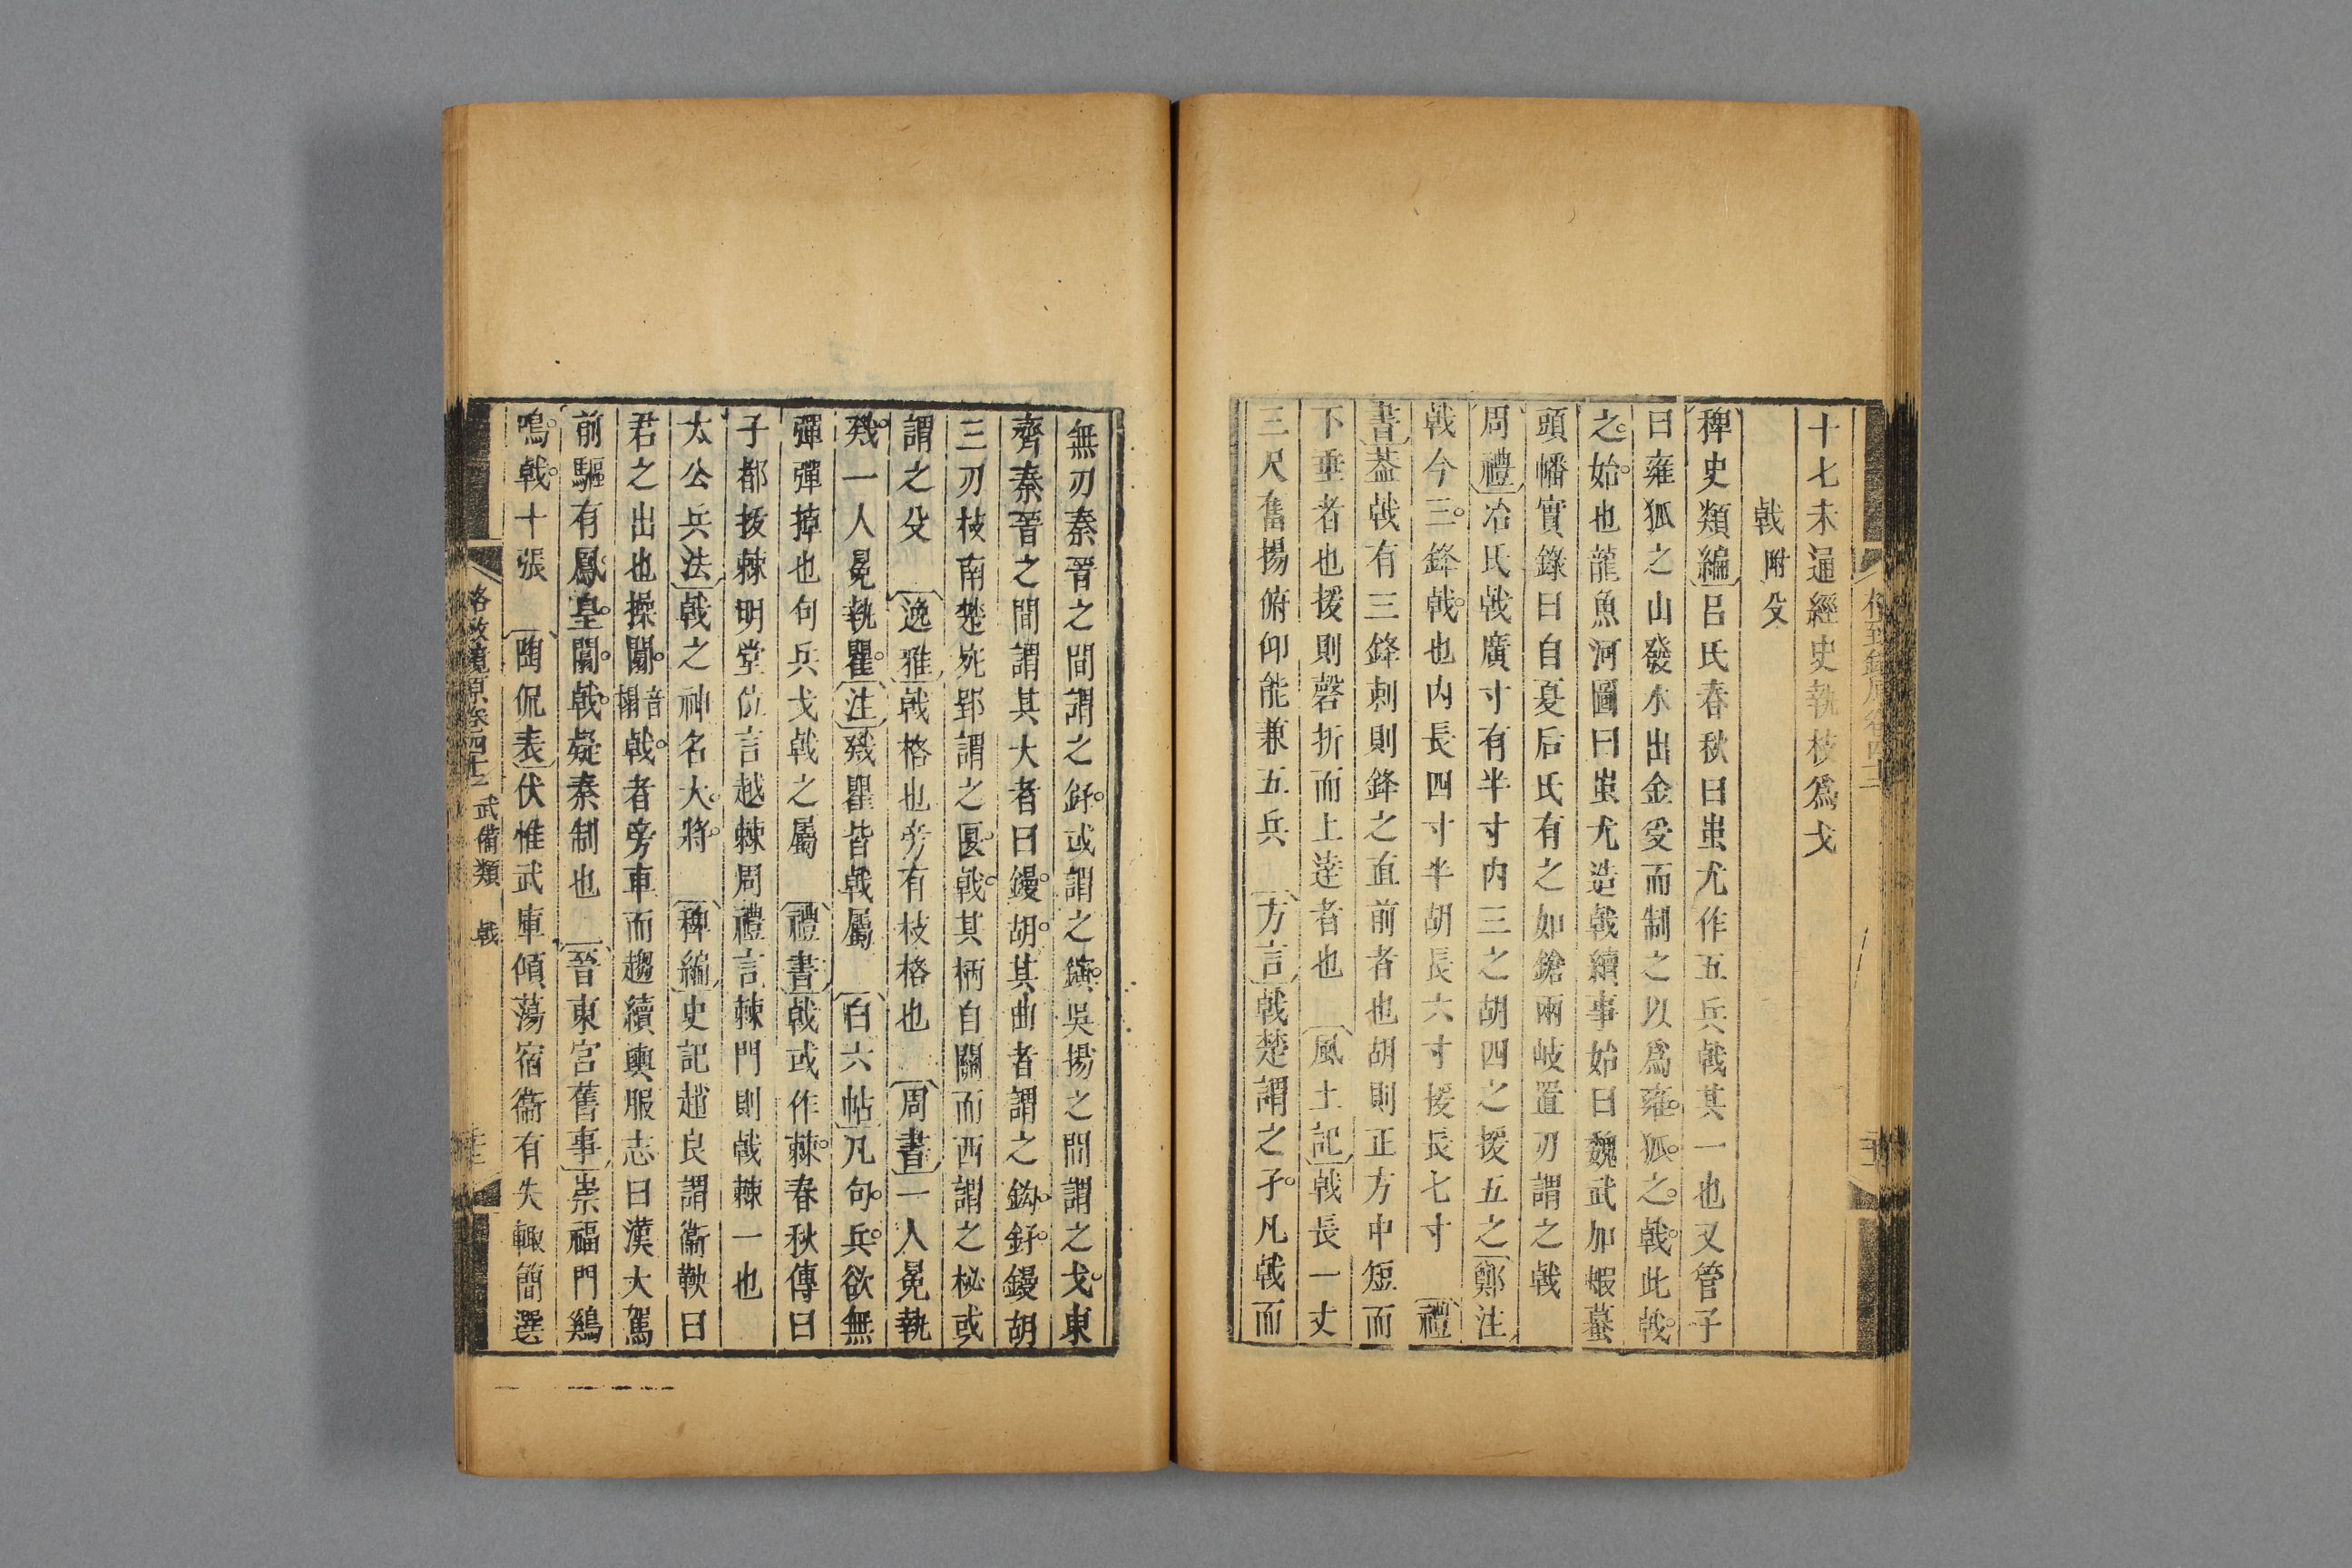 十七未通經史執枝爲戈
戟附殳
稗史類編呂氏春秋曰蚩尤作五兵戟其一也又管子
曰雍狐之山發水出金受而制之以爲雍狐之戟此戟
之始也龍魚河圖曰蚩尤造戟續事始曰魏武加蝦蟇
頭幡實錄曰自夏后氏有之如鎗兩岐置刃謂之戟
周禮冶氏戟廣寸有半寸内三之胡四之援五之鄭注
戟今三鋒戟也内長四寸半胡長六寸援長七寸 禮
書葢戟有三鋒刺則鋒之直前者也胡則正方中短而
下垂者也援則磬折而上逹者也 風土記戟長一丈
三尺奮揚俯仰能兼五兵 方言戟楚謂之孑凡戟而
無刃秦晉之間謂之釨或謂之鏔吳揚之間謂之戈東
齊秦晉之間謂其大者曰鏝胡其曲者謂之鈎釨鏝胡
三刃枝南楚宛郢謂之匽戟其柄自關而西謂之柲或
謂之殳 逸雅戟格也旁有枝格也 周書一人冕執
戣一人冕執瞿注戣瞿皆戟屬 白六帖凡句兵欲無
彈彈掉也句兵戈戟之屬 禮書戟或作棘春秋傳曰
子都拔棘明堂位言越棘周禮言棘門則戟棘一也
太公兵法戟之神名大將 稗編史記趙良謂衞鞅曰
君之出也操闟音搨戟者旁車而趨續輿服志曰漢大駕
前驅有鳳皇闟戟疑秦制也 晉東宮舊事崇福門雞
鳴戟十張 陶侃表伏惟武庫傾蕩宿衞有失輙簡選
格致鏡原卷四十二 武備類 戟